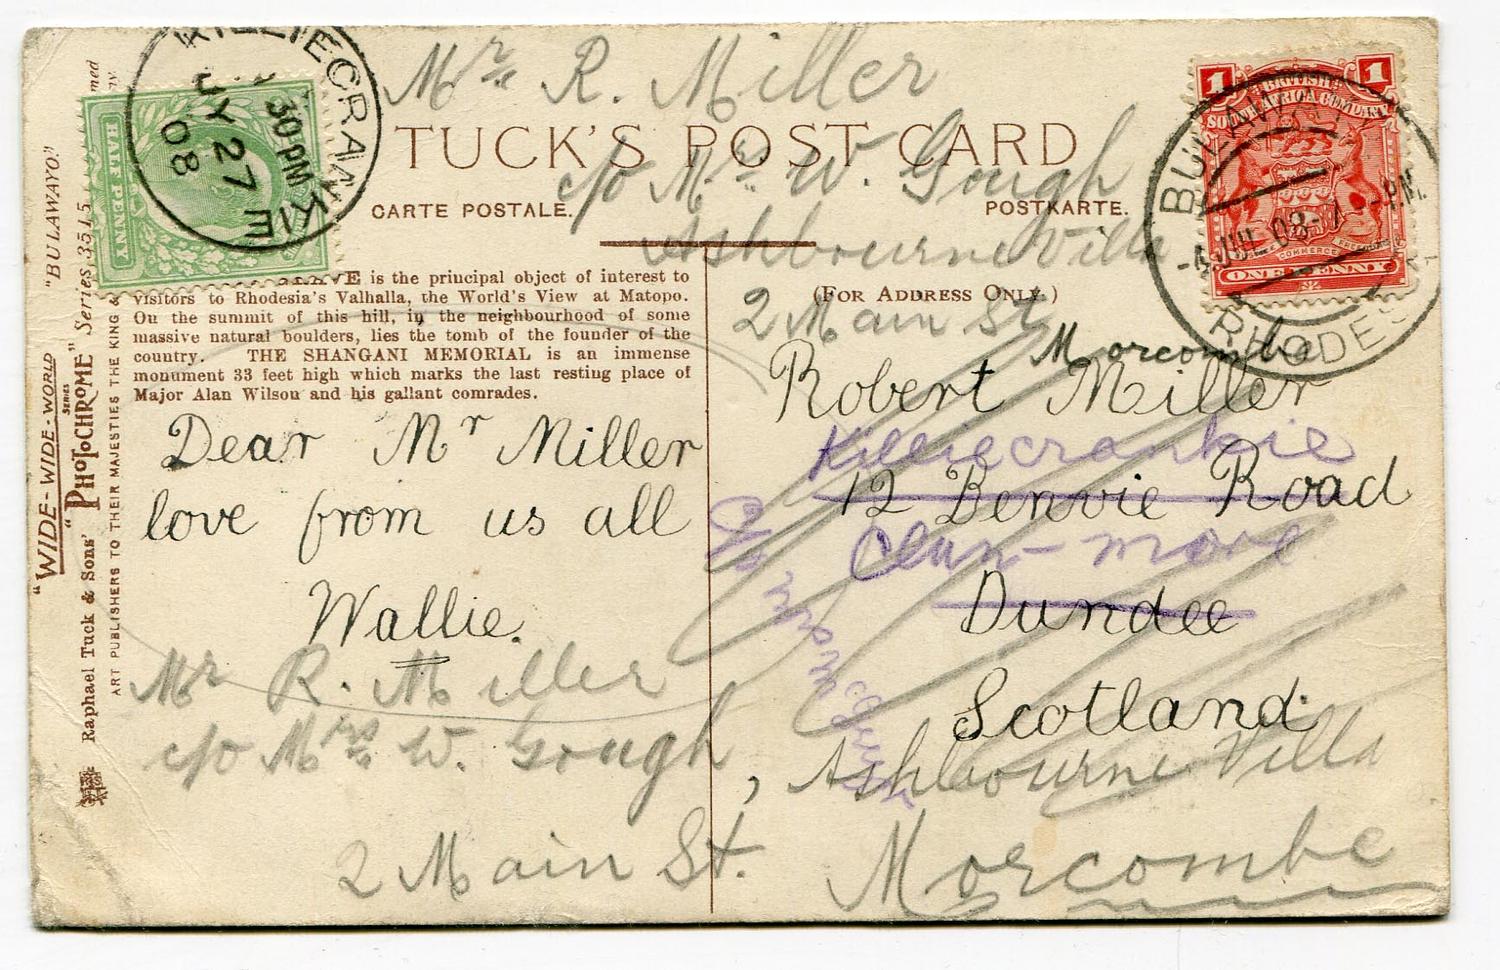 KILLIECRANKIE
30 PM
JY 27
08
E
HALF PENNY
Mr R. Miller
TUCK'S POST CARD
c/o Mrs W. Gough
CARTE POSTALE.
POSTKARTE.
Ashbourne Villa
(FOR ADDRESS ONLY.)
2 Main St
Morcombe
1 1
BRITISH
SOUTH AFRICA COMPANY
COMMERCE
ONE PENNY
BULAWAYO
RHODESIA
JUL 08
PM
is the principal object of interest to
visitors to Rhodesia's Valhalla, the World's View at Matopo.
On the summit of this hill, in the neighbourhood of some
massive natural boulders, lies the tomb of the founder of the
country. THE SHANGANI MEMORIAL is an immense
monument 33 feet high which marks the last resting place of
Major Alan Wilson and his gallant comrades.
"BULAWAYO."
"WIDE-WIDE-WORLD
SERIES
Raphael Tuck & Sons' "PHOTOCHROME" Series 3515.
ART PUBLISHERS TO THEIR MAJESTIES THE KING &
Dear Mr Miller
love from us all
Wallie.
Mr R. Miller
c/o Mrs W. Gough,
2 Main St.
Robert Miller
Killiecrankie
12 Benvie Road
Clun-more
Dundee
Scotland.
Ashbourne Villa
Morcombe